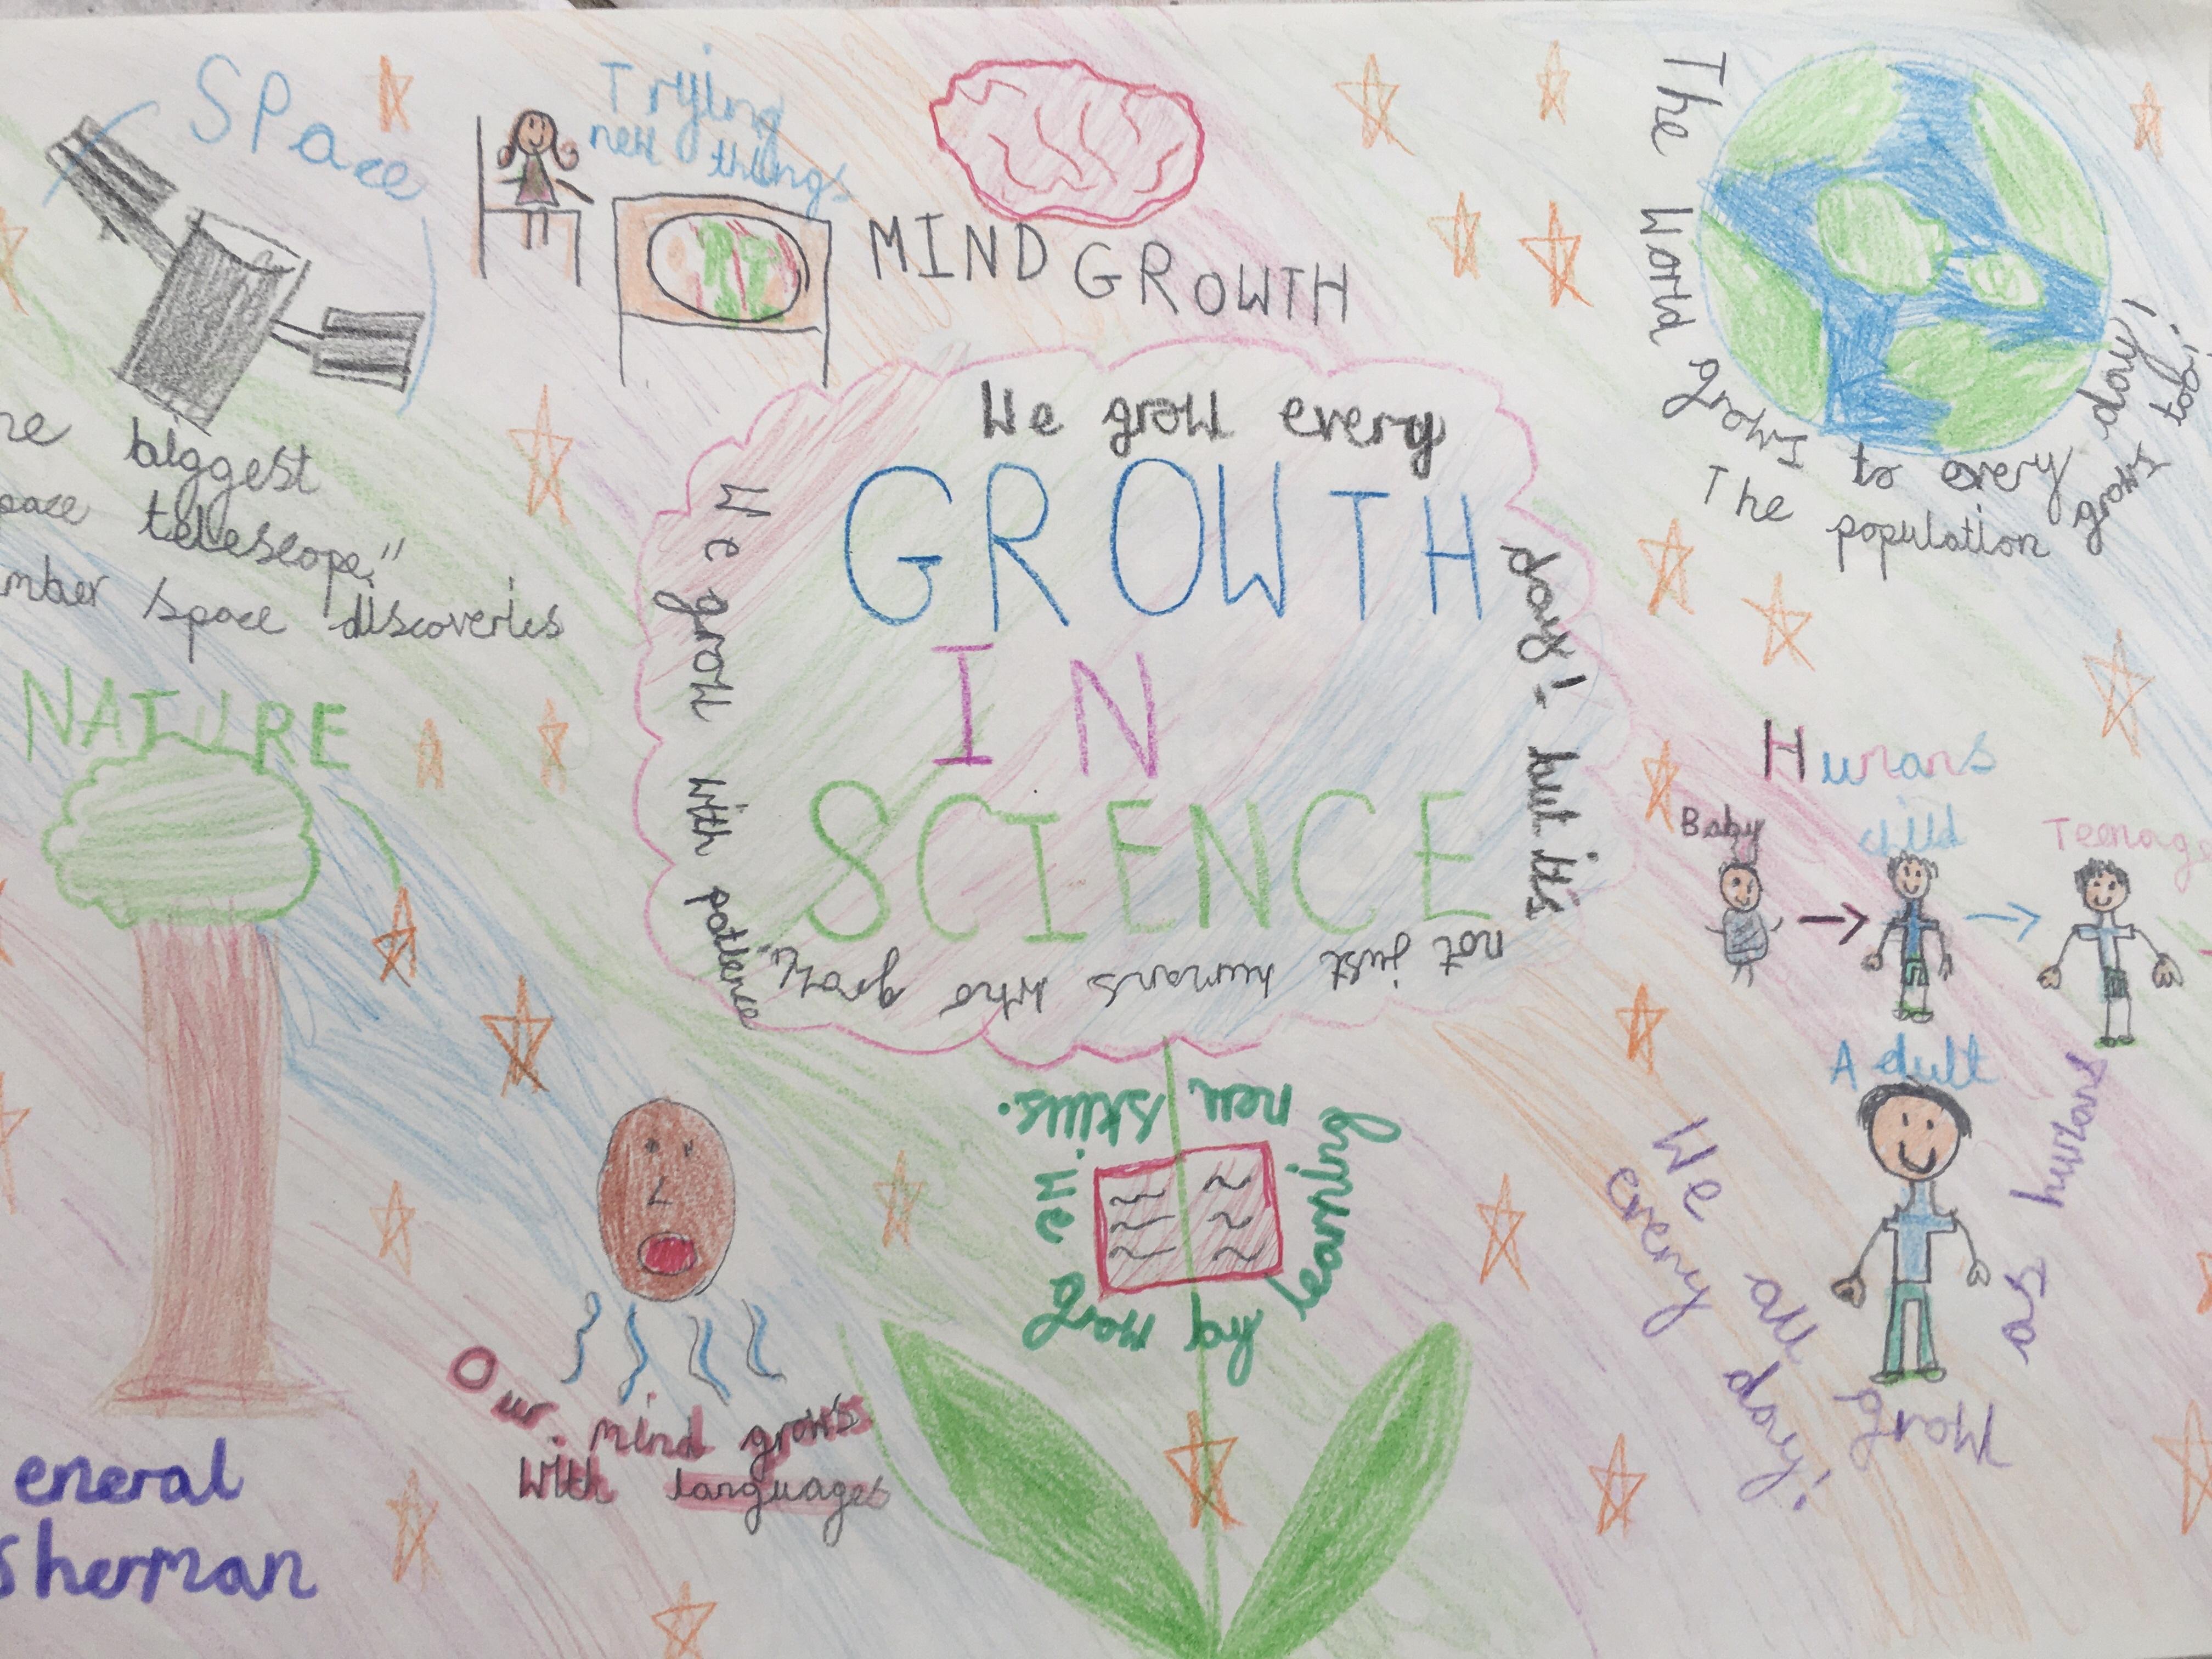 Space
Trying
new things
MIND GROWTH
The World grows to every day!
The population grows to!
biggest
telescope."
space discoveries
We grow every
day! but it's
not just humans who grow.
We grow with patience
GROWTH
IN
SCIENCE
NATURE
eneral
Sherman
Humans
Baby
child
Teenage
Adult
We all grow as humans
every day!
Our mind grows
with languages
We grow by learning new skills.